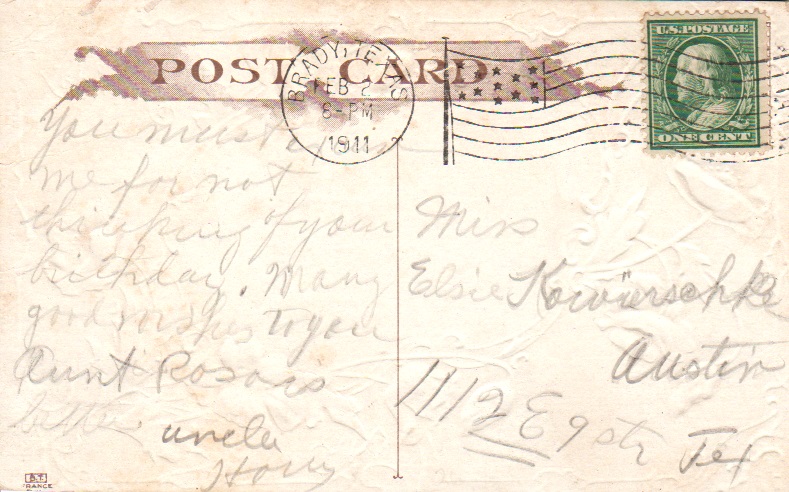 POST CARD
BRADY, TEXAS
FEB 2
6-PM
1911
U.S. POSTAGE
ONE CENT
You must
me for not
thinking of your
birthday. Many
good wishes to you
Aunt Rosa is
better
uncle
Miss
Elsie
Austin
1112 E 9 str
Tex
B.T.
FRANCE